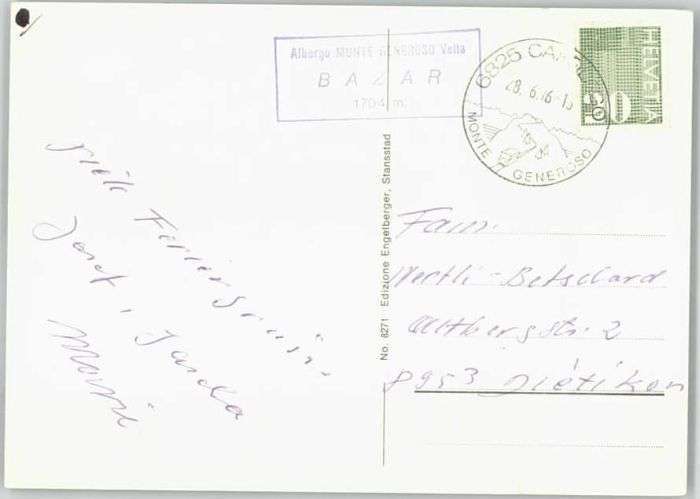 Albergo MONTE GENEROSO Vetta
BAZAR
1704 m
6825 CA
28.6.76-1
MONTE GENEROSO
HELVETIA
No. 8271 Edizione Engelberger, Stansstad
Feriengrüsse
Josef,
Fam.
Betschard
Altbergstr. 2
8953 Dietikon